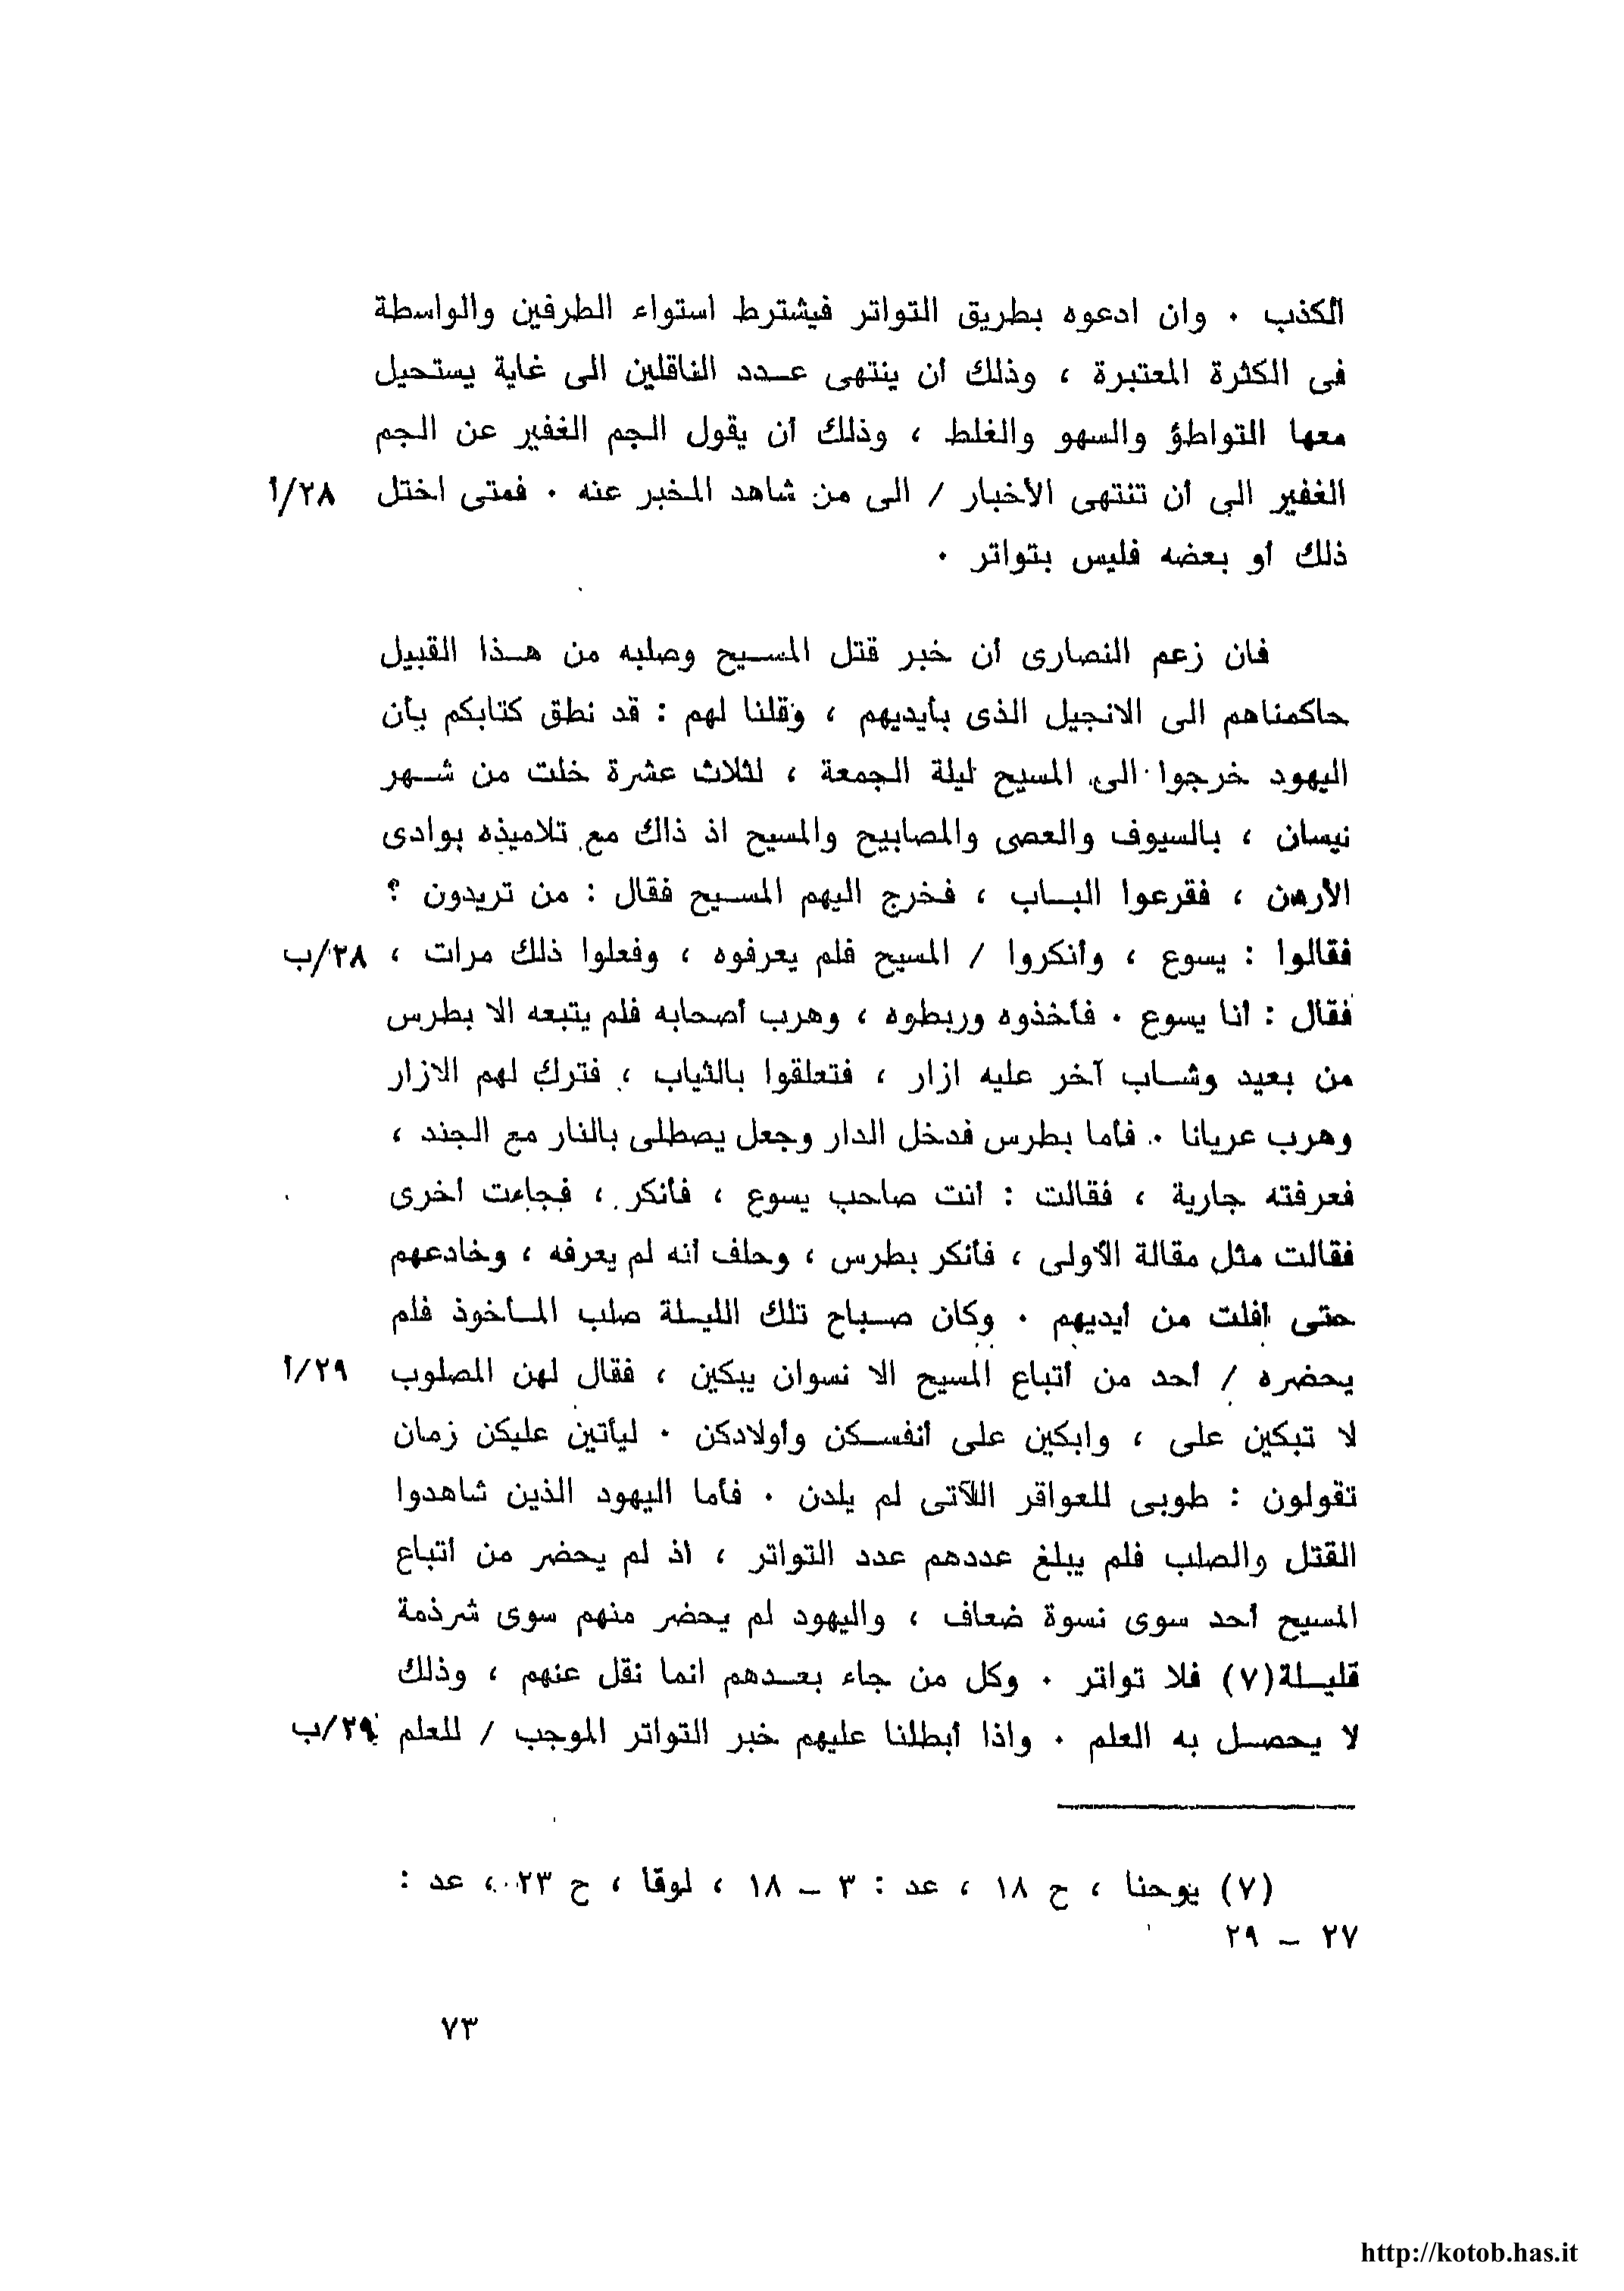 الكذب ٠ وان ادعوه بطريق التواتر فيشترط استواء الطرفين والواسطة
فى الكثرة المعتبرة ، وذلك أن ينتهى عـدد الناقلين الى غاية يستحيل
معها التواطؤ والسهو والغلط ، وذلك أن يقول الجم الغفير عن الجم
الغفير الى أن تنتهى الأخبار / الى من شاهد المخبر عنه ٠ فمتى اختل ٢٨/أ
ذلك أو بعضه فليس بتواتر ٠
فان زعم النصارى أن خبر قتل المسيح وصلبه من هـذا القبيل
حاكمناهم الى الانجيل الذى بأيديهم ، وقلنا لهم : قد نطق كتابكم بأن
اليهود خرجوا الى المسيح ليلة الجمعة ، لثلاث عشرة خلت من شـهر
نيسان ، بالسيوف والعصى والمصابيح والمسيح اذ ذاك مع تلاميذه بوادى
الأرهن ، فقرعوا البـاب ، فخرج اليهم المسـيح فقال : من تريدون ؟
فقالوا : يسوع ، وأنكروا / المسيح فلم يعرفوه ، وفعلوا ذلك مرات ، ٢٨/ب
فقال : أنا يسوع ٠ فأخذوه وربطوه ، وهرب أصحابه فلم يتبعه الا بطرس
من بعيد وشـاب آخر عليه ازار ، فتعلقوا بالثياب ، فترك لهم الازار
وهرب عريانا ٠ فأما بطرس فدخل الدار وجعل يصطلى بالنار مع الجند ،
فعرفته جارية ، فقالت : أنت صاحب يسوع ، فأنكر ، فجاءت أخرى
فقالت مثل مقالة الأولى ، فأنكر بطرس ، وحلف أنه لم يعرفه ، وخادعهم
حتى أفلت من أيديهم ٠ وكان صـباح تلك الليـلة صلب المـأخوذ فلم
يحضره / أحد من أتباع المسيح الا نسوان يبكين ، فقال لهن المصلوب ٢٩/أ
لا تبكين على ، وابكين على أنفسـكن وأولادكن ٠ ليأتين عليكن زمان
تقولون : طوبى للعواقر اللآتى لم يلدن ٠ فأما اليهود الذين شاهدوا
القتل والصلب فلم يبلغ عددهم عدد التواتر ، اذ لم يحضر من أتباع
المسيح أحد سوى نسوة ضعاف ، واليهود لم يحضر منهم سوى شرذمة
قليـلة(٧) فلا تواتر ٠ وكل من جاء بعـدهم انما نقل عنهم ، وذلك
لا يحصـل به العلم ٠ واذا أبطلنا عليهم خبر التواتر الموجب / للعلم ٢٩/ب
(٧) يوحنا ، ح ١٨ ، عد : ٣ ـ ١٨ ، لوقا ، ح ٢٣ ، عد :
٢٧ ـ ٢٩
٧٣
http://kotob.has.it